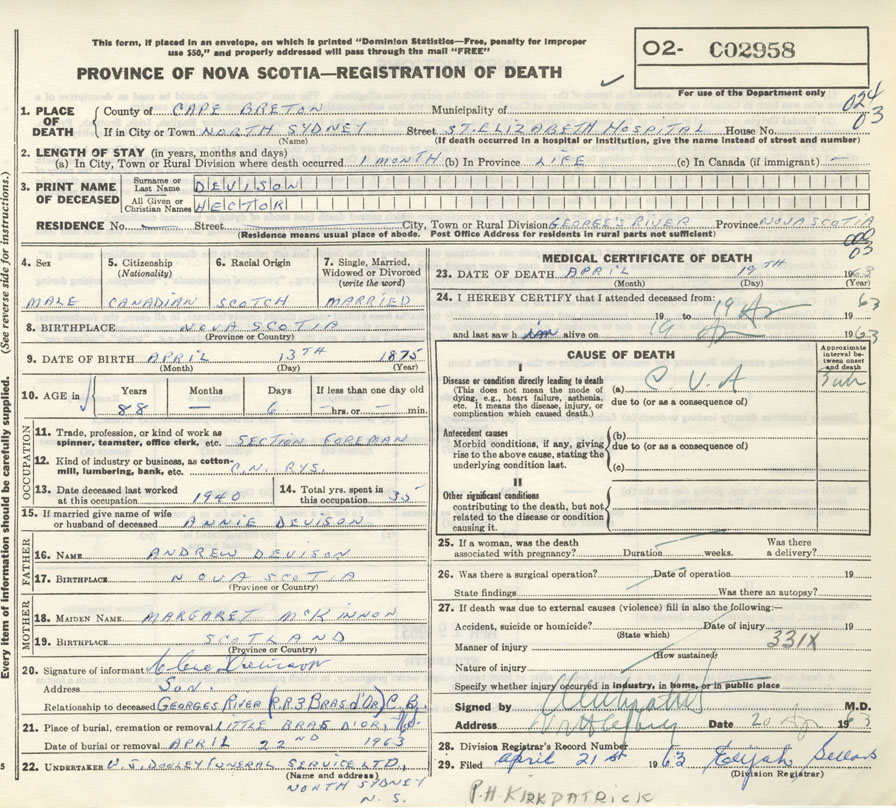 This form, if placed in an envelope, on which is printed "Dominion Statistics—Free, penalty for improper
use $50," and properly addressed will pass through the mail "FREE"
O2- C02958
PROVINCE OF NOVA SCOTIA—REGISTRATION OF DEATH
For use of the Department only
024
03
1. PLACE OF DEATH County of CAPE BRETON Municipality of
If in City or Town NORTH SYDNEY Street ST. ELIZABETH HOSPITAL House No.
(Name) (If death occurred in a hospital or institution, give the name instead of street and number)
2. LENGTH OF STAY (in years, months and days)
(a) In City, Town or Rural Division where death occurred 1 MONTH (b) In Province LIFE (c) In Canada (if immigrant) —
3. PRINT NAME OF DECEASED Surname or Last Name DEVISON
All Given or Christian Names HECTOR
RESIDENCE No. — Street City, Town or Rural Division GEORGE'S RIVER Province NOVA SCOTIA
(Residence means usual place of abode. Post Office Address for residents in rural parts not sufficient)
03
4. Sex 5. Citizenship (Nationality) 6. Racial Origin 7. Single, Married, Widowed or Divorced (write the word)
MALE CANADIAN SCOTCH MARRIED
8. BIRTHPLACE NOVA SCOTIA
(Province or Country)
9. DATE OF BIRTH APRIL 13TH 1875
(Month) (Day) (Year)
10. AGE in Years Months Days If less than one day old
88 — 6 — hrs. or — min.
OCCUPATION
11. Trade, profession, or kind of work as spinner, teamster, office clerk, etc. SECTION FOREMAN
12. Kind of industry or business, as cotton-mill, lumbering, bank, etc. C.N. RYS.
13. Date deceased last worked at this occupation 1940 14. Total yrs. spent in this occupation 35
15. If married give name of wife or husband of deceased ANNIE DEVISON
FATHER
16. NAME ANDREW DEVISON
17. BIRTHPLACE NOVA SCOTIA
(Province or Country)
MOTHER
18. MAIDEN NAME MARGARET McKINNON
19. BIRTHPLACE SCOTLAND
(Province or Country)
20. Signature of informant
Address Son.
Relationship to deceased GEORGES RIVER (R.R.3 BRAS d'OR) C.B.
21. Place of burial, cremation or removal LITTLE BRAS D'OR, N.S.
Date of burial or removal APRIL 22ND 1963
22. UNDERTAKER W.J. DOOLEY FUNERAL SERVICE LTD.,
(Name and address)
NORTH SYDNEY
N.S.
MEDICAL CERTIFICATE OF DEATH
23. DATE OF DEATH APRIL 19TH 1963
(Month) (Day) (Year)
24. I HEREBY CERTIFY that I attended deceased from:
19 to 19 Ap 19 63
and last saw h im alive on 19 Ap 19 63
CAUSE OF DEATH
Approximate interval between onset and death
I
Disease or condition directly leading to death (a) C V A
(This does not mean the mode of dying, e.g., heart failure, asthenia, etc. It means the disease, injury, or complication which caused death.)
due to (or as a consequence of)
Antecedent causes
Morbid conditions, if any, giving rise to the above cause, stating the underlying condition last.
(b)
due to (or as a consequence of)
(c)
II
Other significant conditions
contributing to the death, but not related to the disease or condition causing it.
25. If a woman, was the death associated with pregnancy? Duration weeks. Was there a delivery?
26. Was there a surgical operation? Date of operation 19
State findings Was there an autopsy?
27. If death was due to external causes (violence) fill in also the following:—
Accident, suicide or homicide? Date of injury 19
(State which)
Manner of injury 331X
(How sustained)
Nature of injury
Specify whether injury occurred in industry, in home, or in public place
Signed by M.D.
Address Date 20 Ap 1963
28. Division Registrar's Record Number
29. Filed April 21st 1963 Elijah
(Division Registrar)
P.H. KIRKPATRICK
Every item of information should be carefully supplied. (See reverse side for instructions.)
5